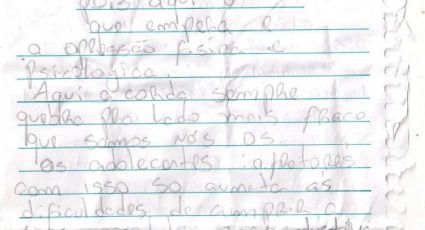 que empera e
a opressão fisica e
Psicologica.
Aqui a corda sempre
quebra pro lado mais fraco
que somos nós os
os adolecentes infratores
com isso so aumenta as
dificuldades de cumprir a